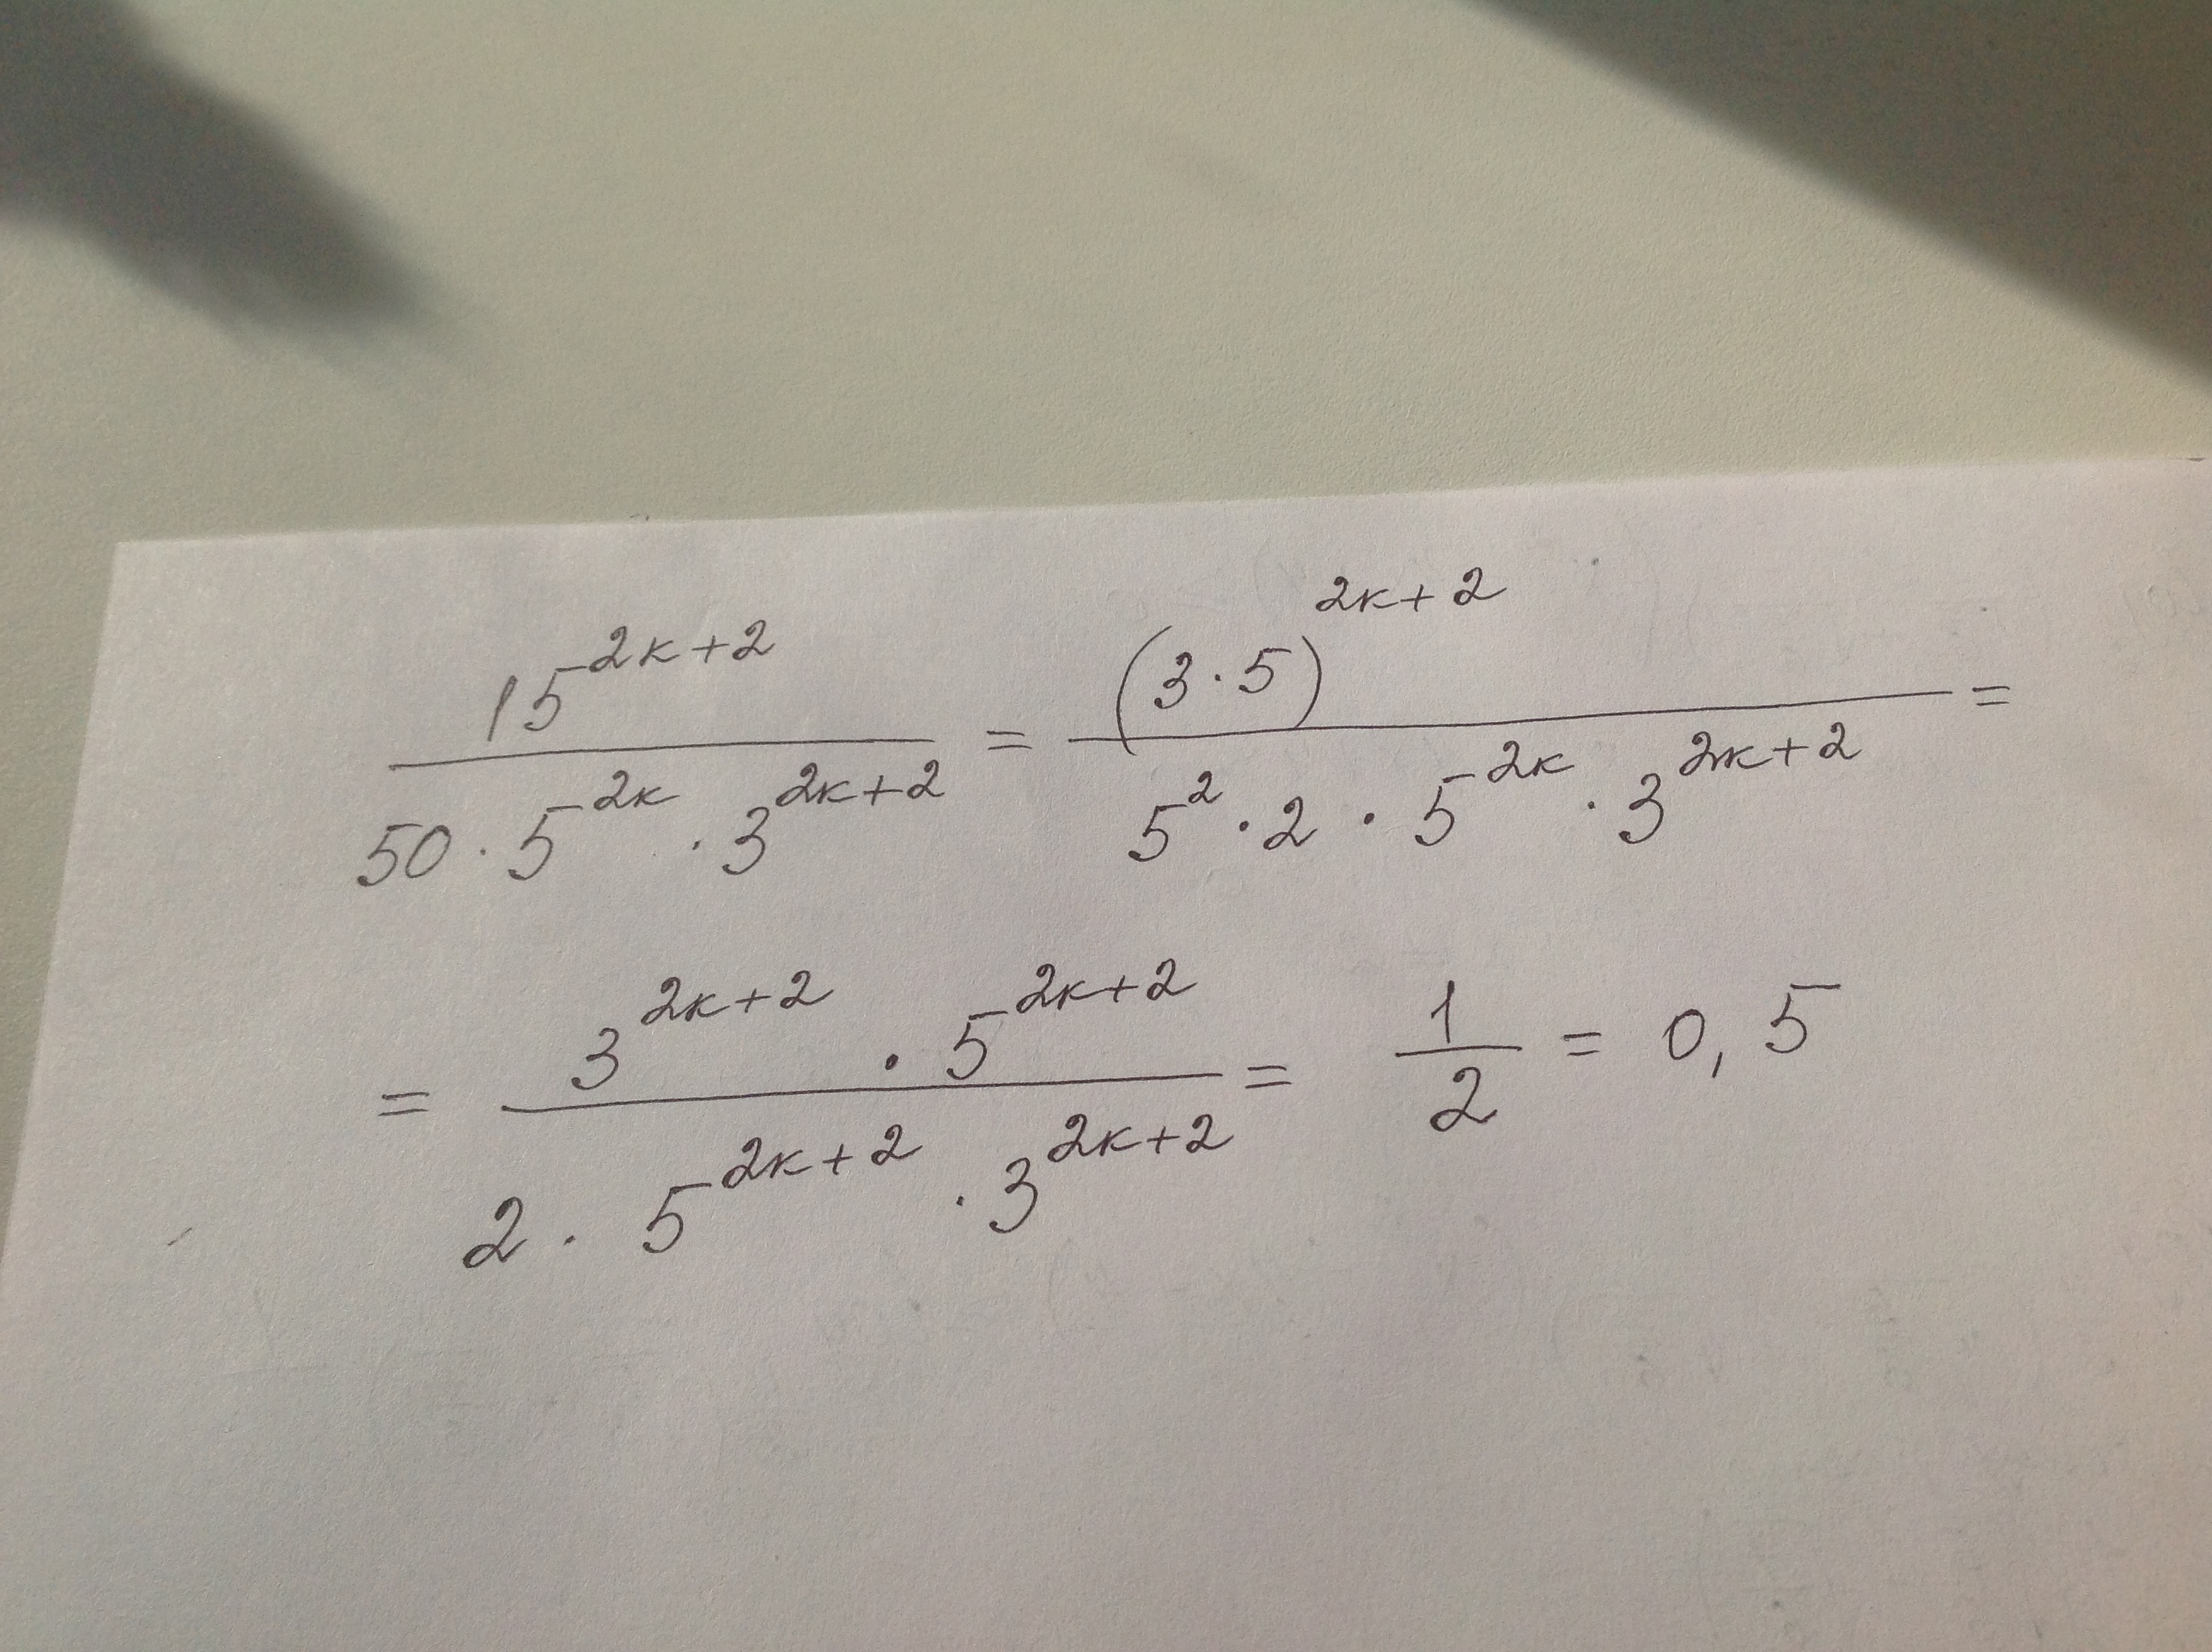 15^{2к+2} / (50 · 5^{2к} · 3^{2к+2}) = (3 · 5)^{2к+2} / (5^2 · 2 · 5^{2к} · 3^{2к+2}) =
= (3^{2к+2} · 5^{2к+2}) / (2 · 5^{2к+2} · 3^{2к+2}) = 1/2 = 0,5